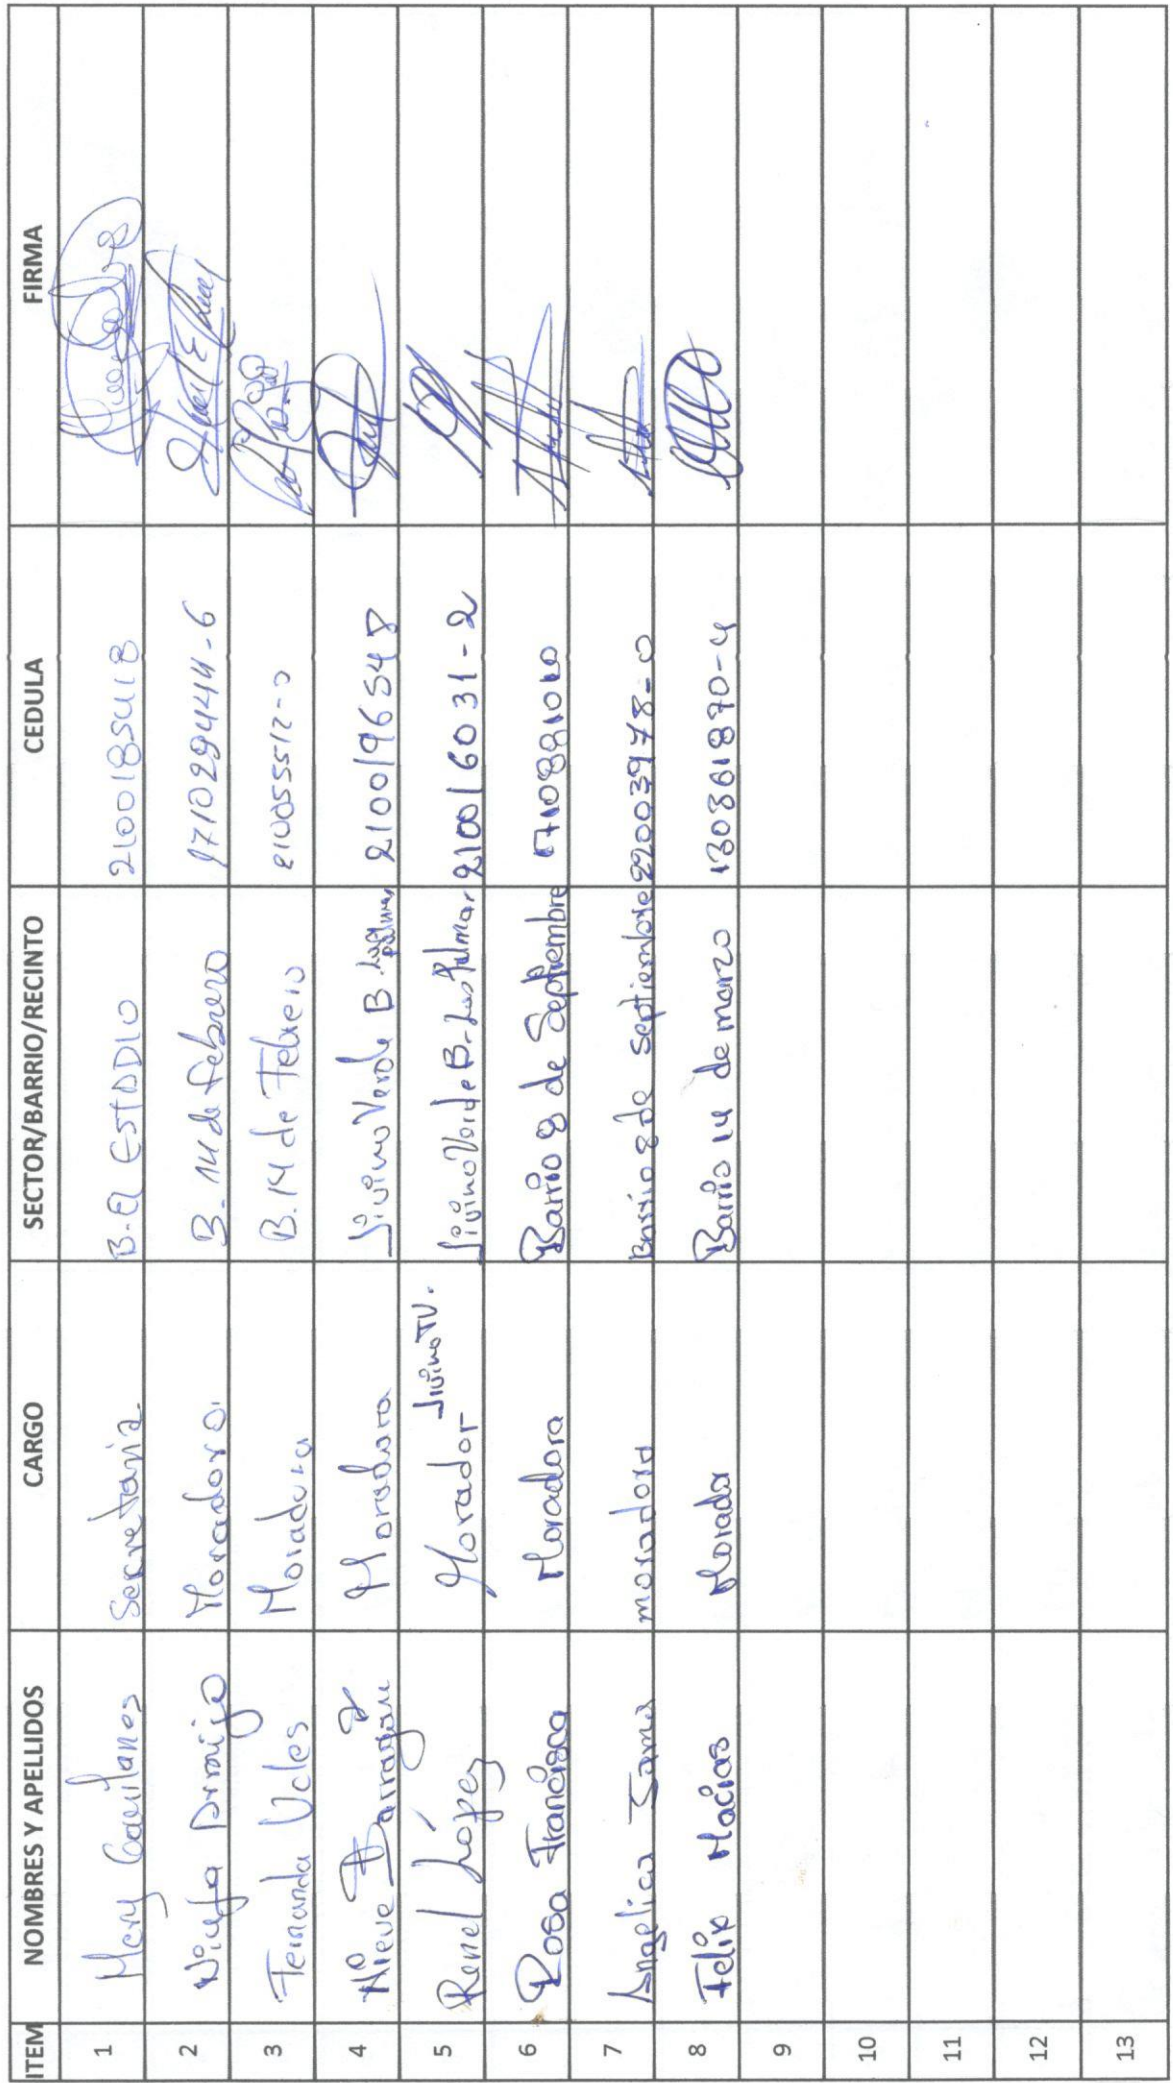 ITEM NOMBRES Y APELLIDOS CARGO SECTOR/BARRIO/RECINTO CEDULA FIRMA
1 Mery Gavilanes Secretaria B. El ESTADIO 2100185418
2 B. 14 de febrero 171029444-6
3 Fernanda Veles Moradora B. 14 de Febrero 210055512-0
4 Nieve Barragán Moradora Divino Verde B. Las Palmas 2100196548
5 Renel López Morador Divino Verde B. Las Palmar 210016031-2
6 Rosa Francisca Moradora Barrio 8 de Septiembre 1710881010
7 Angelica Jama moradora Barrio 8 de septiembre 220039978-0
8 Felix Macias Morador Barrio 14 de marzo 130361870-4
9
10
11
12
13